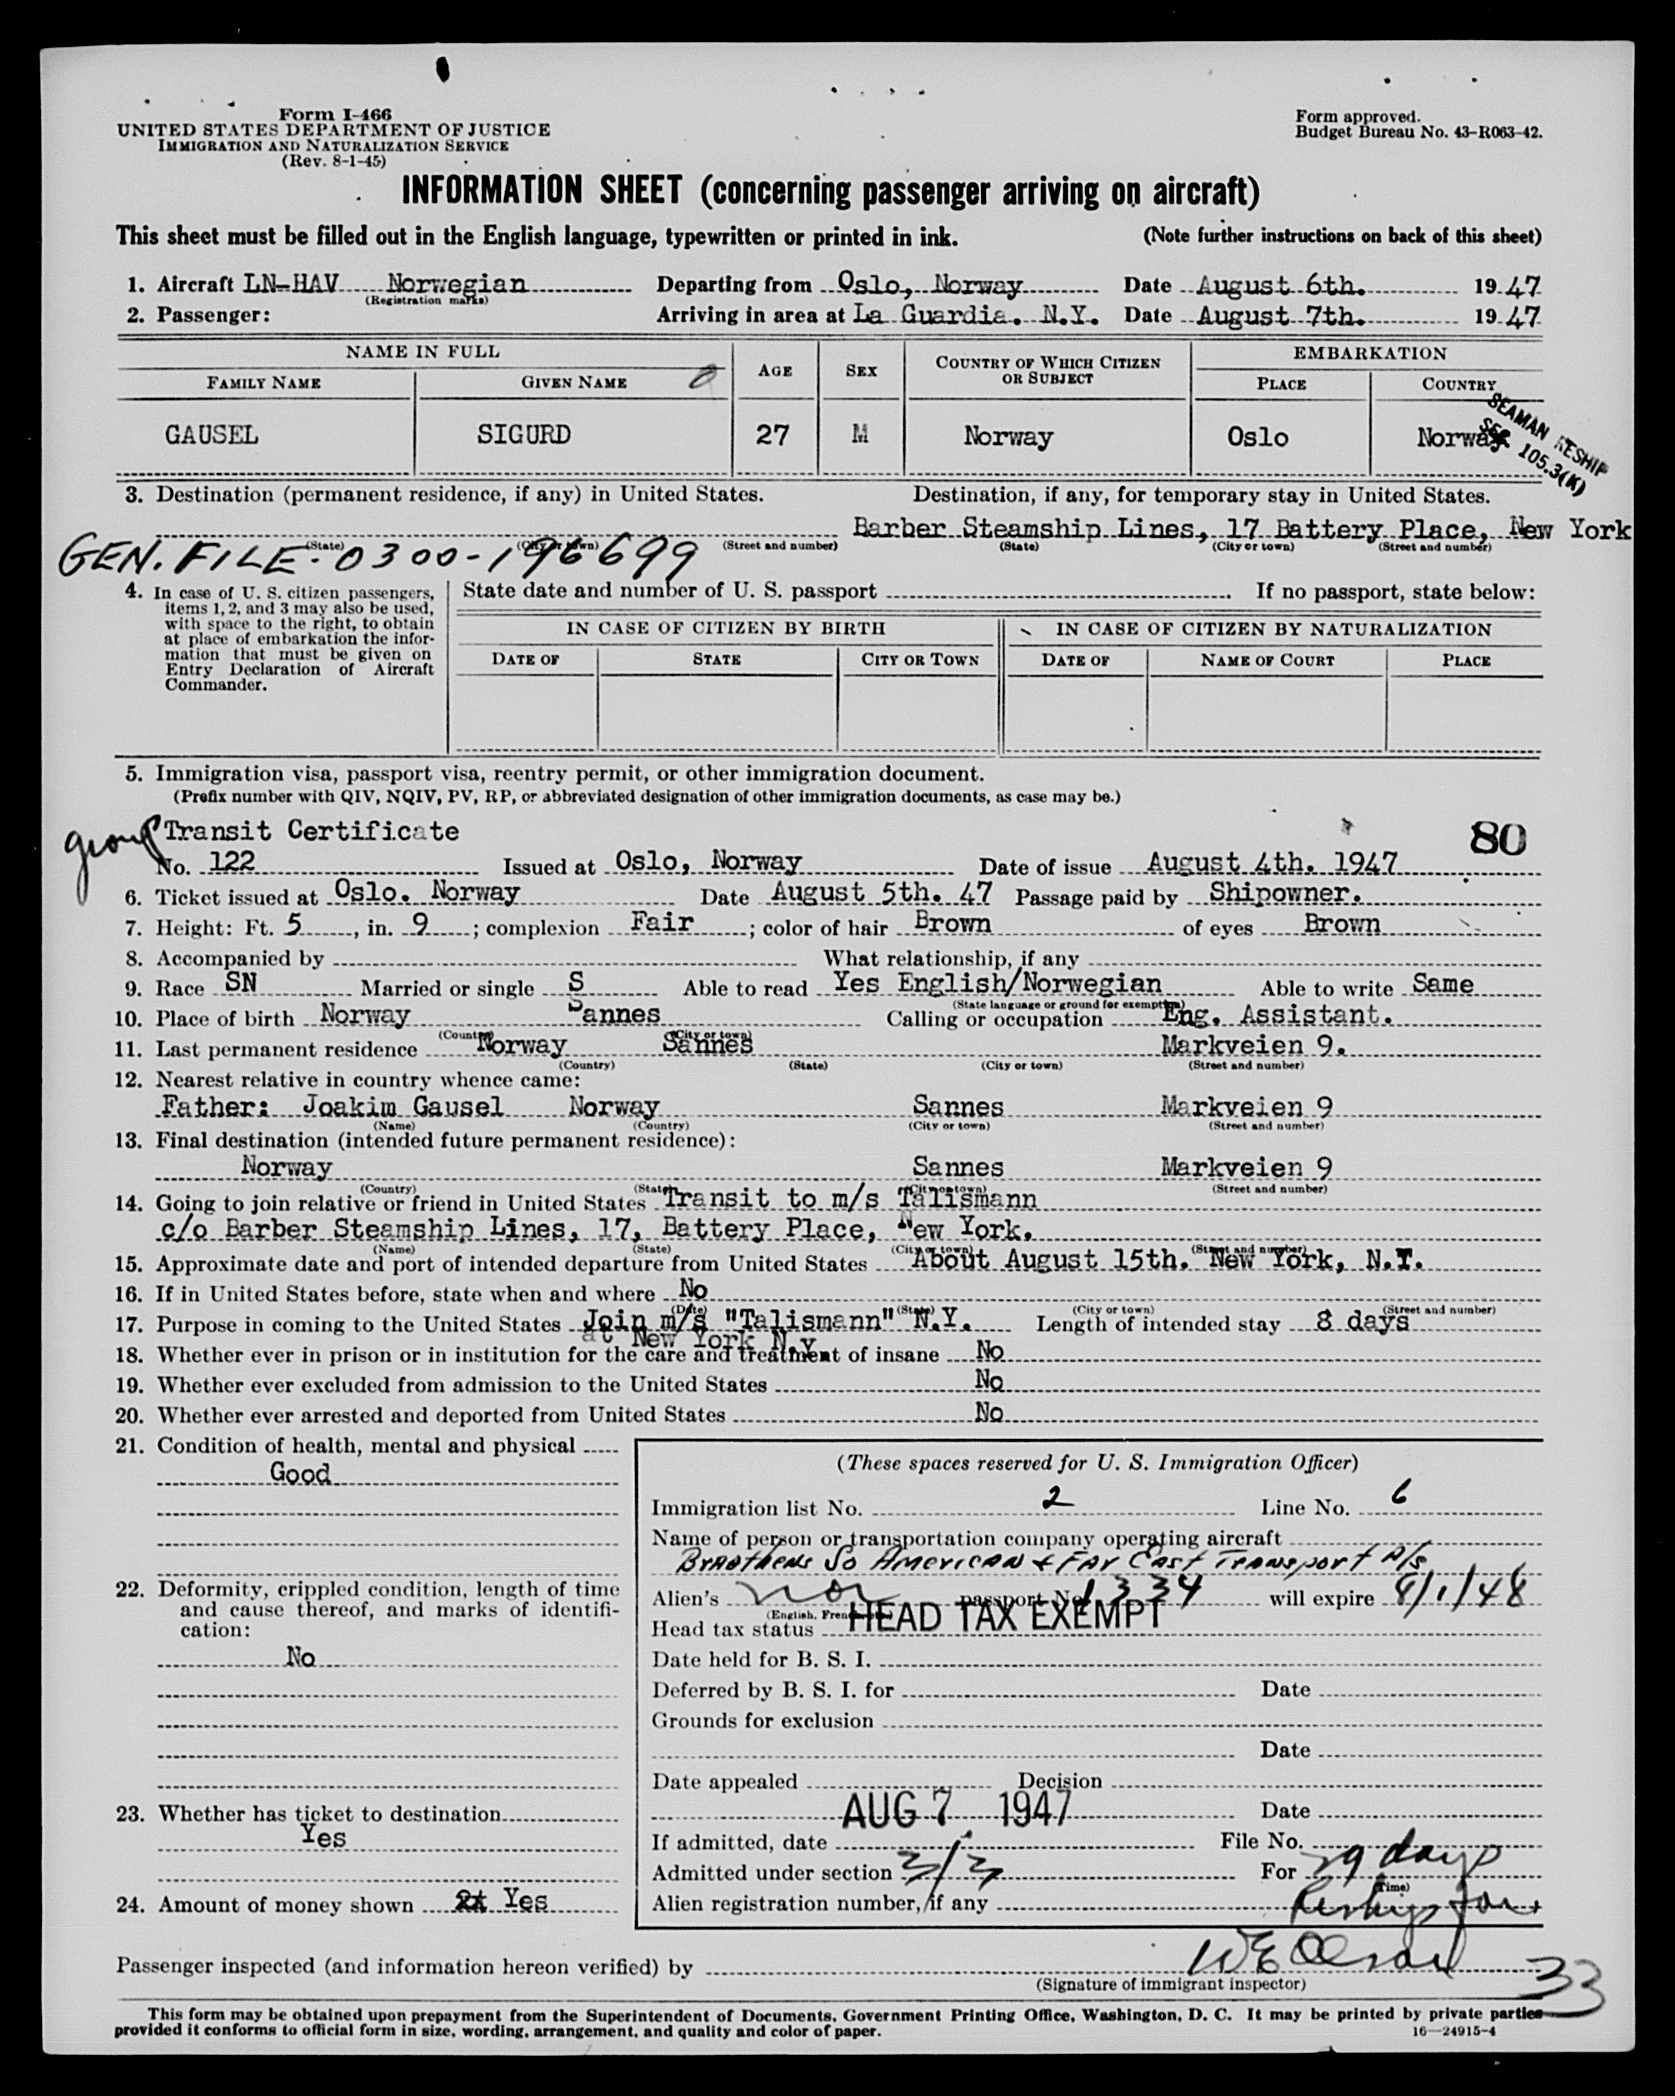 Form I-466
UNITED STATES DEPARTMENT OF JUSTICE
IMMIGRATION AND NATURALIZATION SERVICE
(Rev. 8-1-45)
Form approved.
Budget Bureau No. 43-R063-42.
INFORMATION SHEET (concerning passenger arriving on aircraft)
This sheet must be filled out in the English language, typewritten or printed in ink. (Note further instructions on back of this sheet)
1. Aircraft LN-HAV Norwegian Departing from Oslo, Norway Date August 6th. 1947
(Registration marks)
2. Passenger: Arriving in area at La Guardia. N.Y. Date August 7th. 1947
NAME IN FULL AGE SEX COUNTRY OF WHICH CITIZEN OR SUBJECT EMBARKATION
FAMILY NAME GIVEN NAME PLACE COUNTRY
GAUSEL SIGURD 27 M Norway Oslo Norway
SEAMAN RESHIP
SEC 105.3(K)
3. Destination (permanent residence, if any) in United States. Destination, if any, for temporary stay in United States.
Barber Steamship Lines, 17 Battery Place, New York
(State) (City or town) (Street and number) (State) (City or town) (Street and number)
GEN. FILE-0300-196699
4. In case of U. S. citizen passengers, items 1, 2, and 3 may also be used, with space to the right, to obtain at place of embarkation the information that must be given on Entry Declaration of Aircraft Commander.
State date and number of U. S. passport If no passport, state below:
IN CASE OF CITIZEN BY BIRTH IN CASE OF CITIZEN BY NATURALIZATION
DATE OF STATE CITY OR TOWN DATE OF NAME OF COURT PLACE
5. Immigration visa, passport visa, reentry permit, or other immigration document.
(Prefix number with QIV, NQIV, PV, RP, or abbreviated designation of other immigration documents, as case may be.)
group Transit Certificate 80
No. 122 Issued at Oslo, Norway Date of issue August 4th. 1947
6. Ticket issued at Oslo. Norway Date August 5th. 47 Passage paid by Shipowner.
7. Height: Ft. 5, in. 9; complexion Fair; color of hair Brown of eyes Brown
8. Accompanied by What relationship, if any
9. Race SN Married or single S Able to read Yes English/Norwegian Able to write Same
(State language or ground for exemption)
10. Place of birth Norway Sannes Calling or occupation Eng. Assistant.
(Country) (City or town)
11. Last permanent residence Norway Sannes Markveien 9.
(Country) (State) (City or town) (Street and number)
12. Nearest relative in country whence came:
Father: Joakim Gausel Norway Sannes Markveien 9
(Name) (Country) (City or town) (Street and number)
13. Final destination (intended future permanent residence):
Norway Sannes Markveien 9
(Country) (State) (City or town) (Street and number)
14. Going to join relative or friend in United States Transit to m/s Talismann
c/o Barber Steamship Lines, 17, Battery Place, New York.
(Name) (State) (City or town) (Street and number)
15. Approximate date and port of intended departure from United States About August 15th. New York, N.Y.
16. If in United States before, state when and where No
(Date) (State) (City or town) (Street and number)
17. Purpose in coming to the United States Join m/s "Talismann" N.Y. Length of intended stay 8 days
at New York N.Y.
18. Whether ever in prison or in institution for the care and treatment of insane No
19. Whether ever excluded from admission to the United States No
20. Whether ever arrested and deported from United States No
21. Condition of health, mental and physical
Good
(These spaces reserved for U. S. Immigration Officer)
Immigration list No. 2 Line No. 6
Name of person or transportation company operating aircraft
Brathens So American & Far East Transport A/S
22. Deformity, crippled condition, length of time and cause thereof, and marks of identification:
No
Alien's Nor passport No. 1334 will expire 8/1/48
(English, French, etc.)
Head tax status HEAD TAX EXEMPT
Date held for B. S. I.
Deferred by B. S. I. for Date
Grounds for exclusion
Date
Date appealed Decision
Date
23. Whether has ticket to destination
Yes
If admitted, date AUG 7 1947 File No.
Admitted under section 3/3 For 29 days
(Time)
24. Amount of money shown Yes
Alien registration number, if any
Passenger inspected (and information hereon verified) by
(Signature of immigrant inspector)
33
This form may be obtained upon prepayment from the Superintendent of Documents, Government Printing Office, Washington, D. C. It may be printed by private parties
provided it conforms to official form in size, wording, arrangement, and quality and color of paper. 16—24915-4